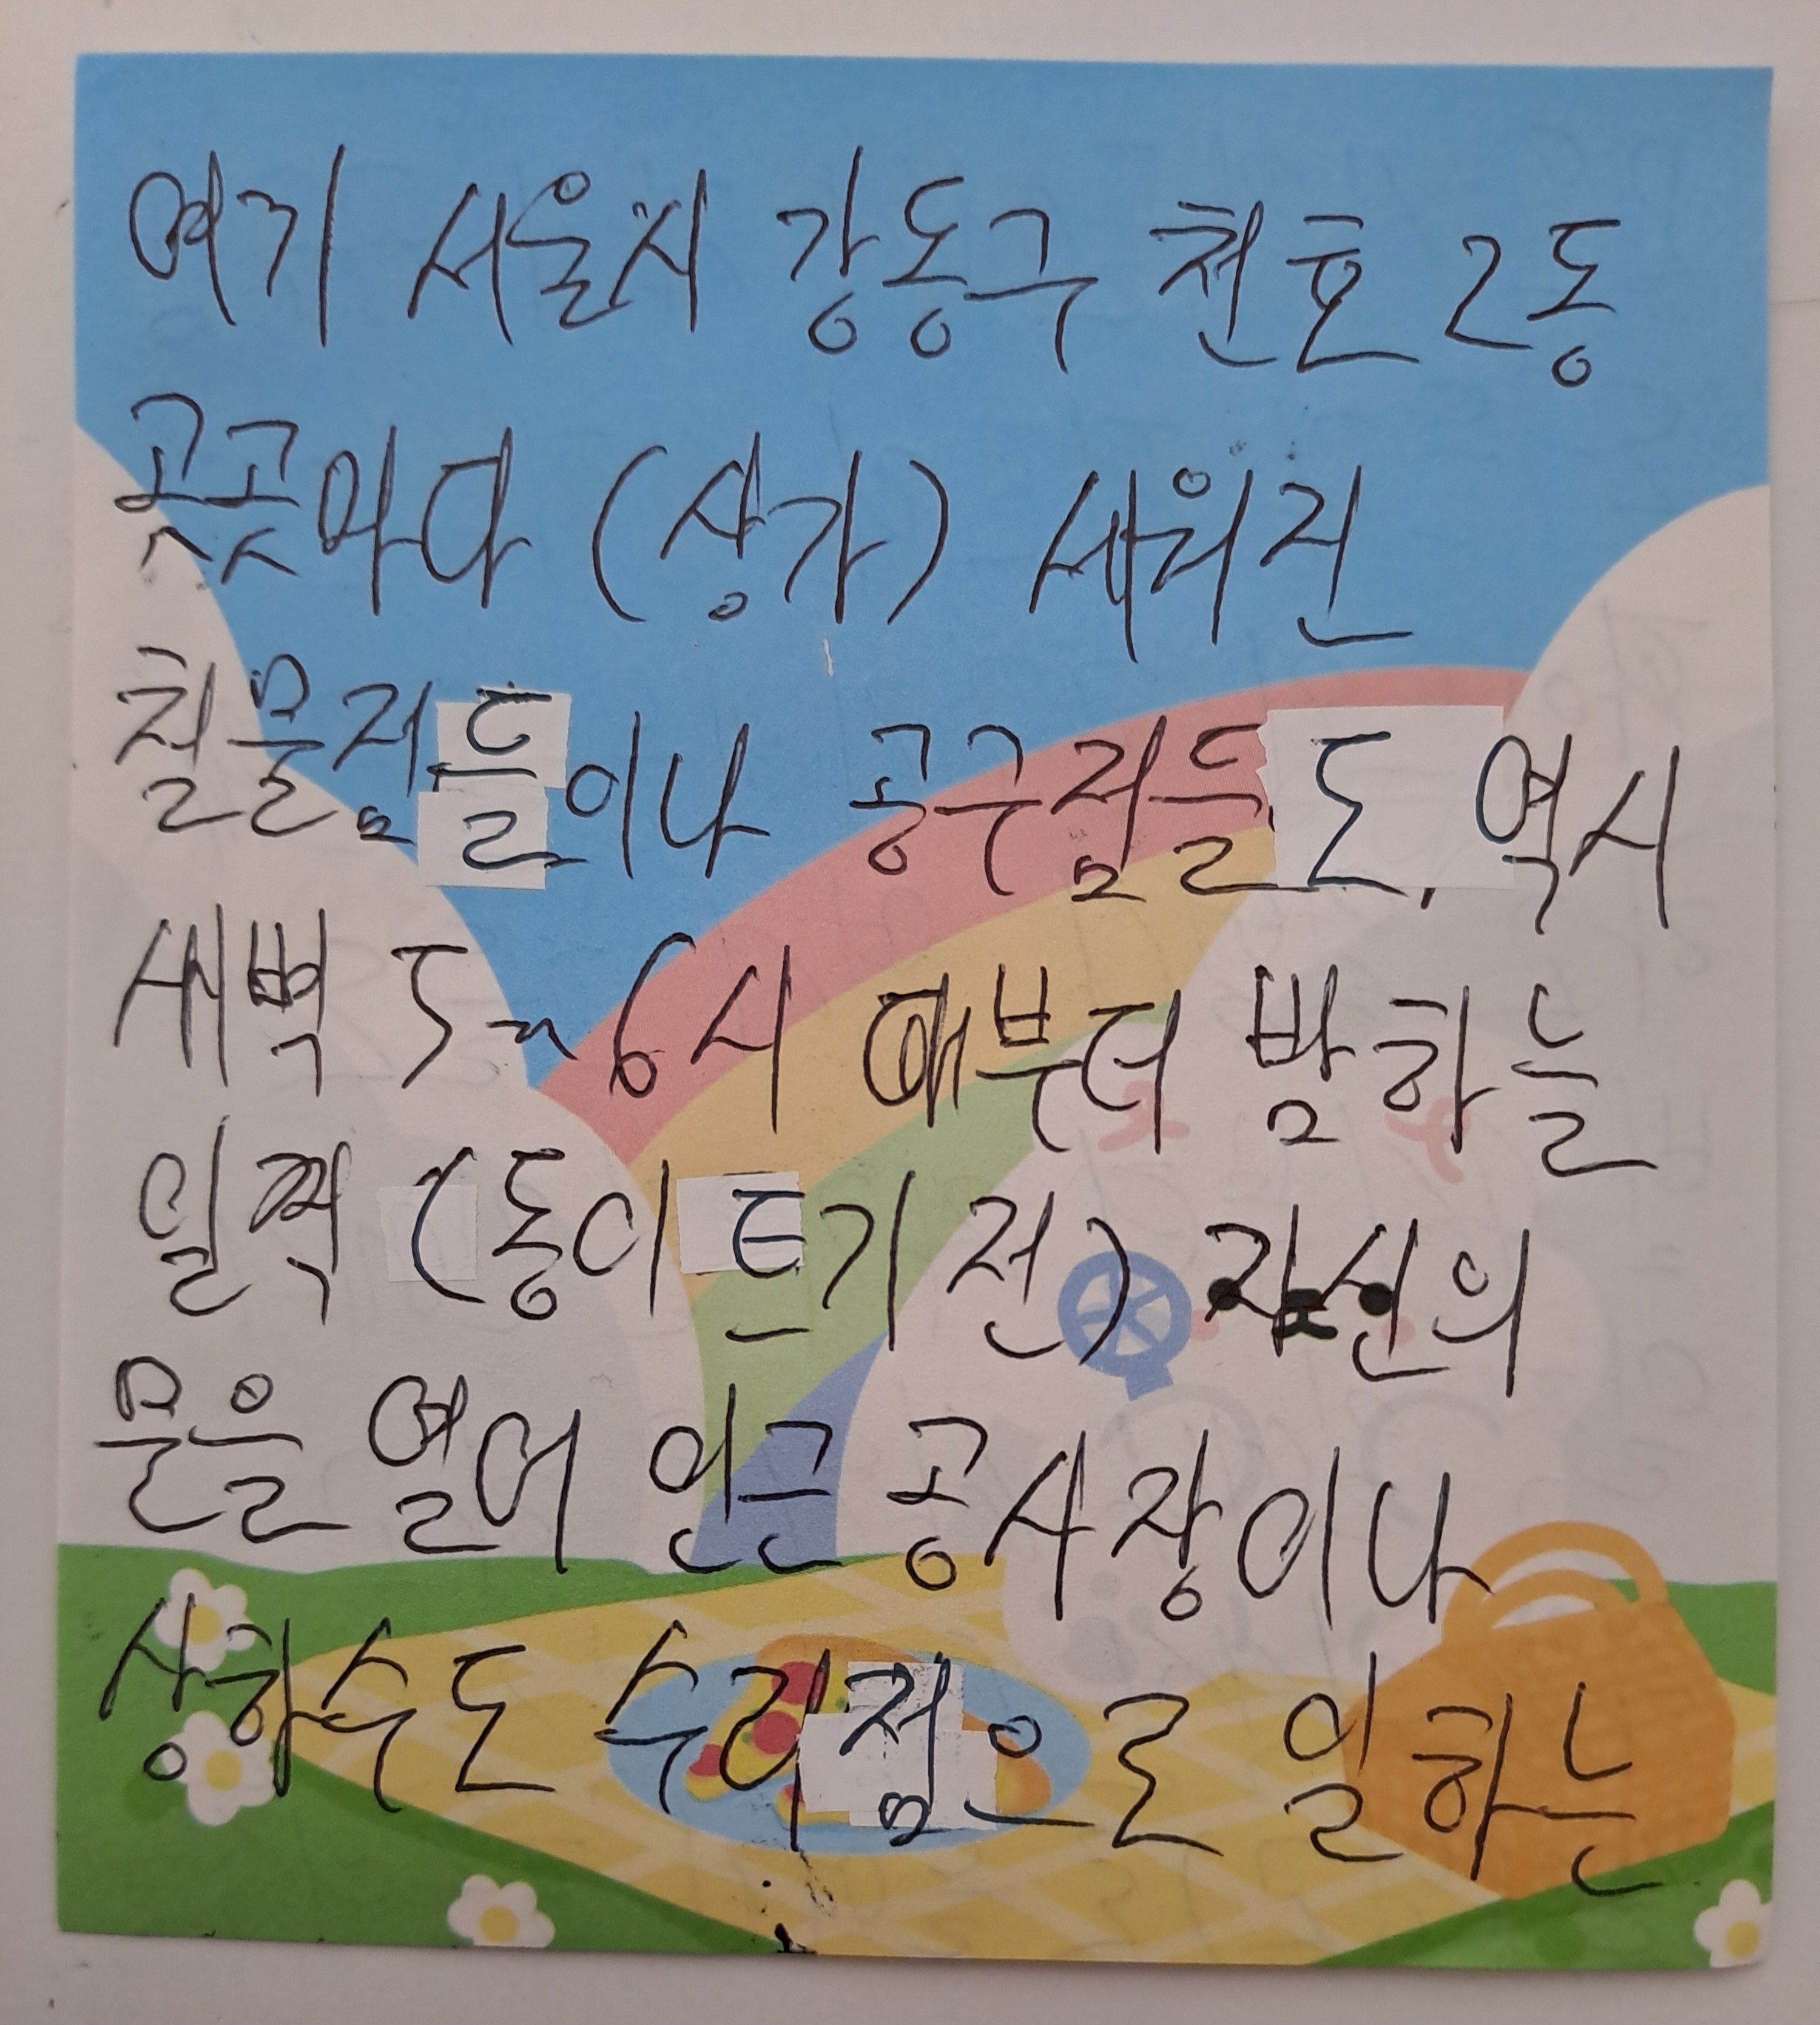 여기 서울시 강동구 천호 2동
곳곳마다 (상가) 세워진
철물점들이나 공구점들도, 역시
새벽 5~6시 때부터 밤하늘
일찍 (동이 트기 전) 자신의
문을 열어 인근 공사장이나
상하수도 수리점으로 일하는